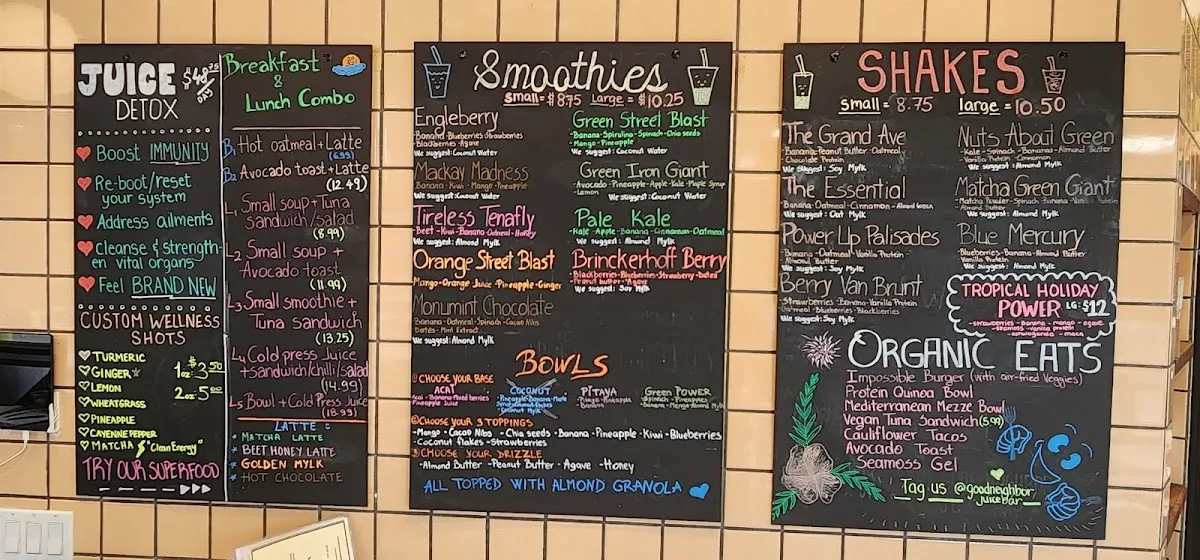 JUICE $48.75
DETOX DAY
Boost IMMUNITY
Re-boot/reset
your system
Address ailments
Cleanse & strength-
en vital organs
Feel BRAND NEW
CUSTOM WELLNESS
SHOTS
TURMERIC
GINGER
LEMON
WHEATGRASS
PINEAPPLE
CAYENNE PEPPER
MATCHA "Clean Energy"
1oz $3.50
2oz 5.00
TRY OUR SUPERFOOD
Breakfast
&
Lunch Combo
B1 Hot oatmeal + Latte
(6.99)
B2 Avocado toast + Latte
(12.49)
L1 Small soup + Tuna
sandwich/salad
(8.99)
L2 Small soup +
Avocado toast
(11.99)
L3 Small smoothie +
Tuna sandwich
(13.25)
L4 Cold press Juice
+ sandwich/chilli/salad
(14.99)
L5 Bowl + Cold Press Juice
(18.99)
LATTE :
* MATCHA LATTE
* BEET HONEY LATTE
* GOLDEN MYLK
* HOT CHOCOLATE
Smoothies
Small = $8.75 Large = $10.25
Engleberry
Banana - Blueberries - Strawberries
Blackberries - Agave
We suggest: Coconut Water
Mackay Madness
Banana - Kiwi - Mango - Pineapple
We suggest: Coconut Water
Tireless Tenafly
Beet - Kiwi - Banana - Oatmeal - Honey
We suggest: Almond Mylk
Orange Street Blast
Mango - Orange Juice - Pineapple - Ginger
Monumint Chocolate
Banana - Oatmeal - Spinach - Cacao Nibs
Dates - Mint Extract
We suggest: Almond Mylk
Green Street Blast
- Banana - Spirulina - Spinach - Chia seeds
- Mango - Pineapple
We suggest: Coconut Water
Green Iron Giant
- Avocado - Pineapple - Apple - Kale - Maple Syrup
- Lemon
We suggest: Coconut Water
Pale Kale
- Kale - Apple - Banana - Cinnamon - Oatmeal
We suggest: Almond Mylk
Brinckerhoff Berry
Blackberries - Blueberries - Strawberry - Dates
Peanut butter - Agave
We suggest: Soy Mylk
BOWLS
① CHOOSE YOUR BASE
ACAI
Acai - Banana - Mixed berries
Pineapple Juice
COCONUT
PITAYA
Pitaya - Pineapple
Banana
GREEN POWER
Spinach - Pineapple
Banana - Mango - Almond Mylk
② CHOOSE YOUR 3 TOPPINGS
- Mango - Cacao Nibs - Chia seeds - Banana - Pineapple - Kiwi - Blueberries
- Coconut flakes - Strawberries
③ CHOOSE YOUR DRIZZLE
- Almond Butter - Peanut Butter - Agave - Honey
ALL TOPPED WITH ALMOND GRANOLA
SHAKES
small = 8.75 large = 10.50
The Grand Ave
Banana - Peanut Butter - Oatmeal
Chocolate Protein
We suggest: Soy Mylk
The Essential
Banana - Oatmeal - Cinnamon - Almond
We suggest: Oat Mylk
Power Up Palisades
Banana - Oatmeal - Vanilla Protein
Almond Butter
We suggest: Soy Mylk
Berry Van Brunt
Strawberries - Banana - Vanilla Protein
Oatmeal - Blueberries - Blackberries
We suggest: Soy Mylk
Nuts About Green
- Kale - Spinach - Bananas - Almond Butter
- Vanilla Protein - Cinnamon
We suggest: Almond Mylk
Matcha Green Giant
- Matcha Powder - Spinach - Banana - Vanilla Protein
Almond Butter
We suggest: Almond Mylk
Blue Mercury
Blueberries - Banana - Almond Butter
Vanilla Protein
We suggest: Almond Mylk
TROPICAL HOLIDAY
POWER LG: $12
- strawberries - banana - mango - agave
- seamoss - vanilla protein
- ashwaganda - maca
ORGANIC EATS
Impossible Burger (with air-fried Veggies)
Protein Quinoa Bowl
Mediterranean Mezze Bowl
Vegan Tuna Sandwich (5.99)
Cauliflower Tacos
Avocado Toast
Seamoss Gel
Tag us @goodneighbor
juicebar